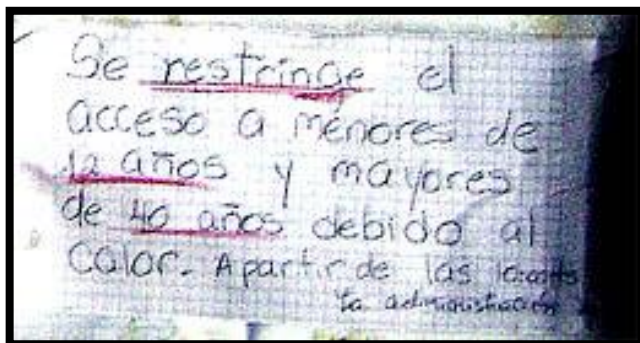 Se restringe el
acceso a menores de
12 años y mayores
de 40 años debido al
calor. Apartir de las
la administración